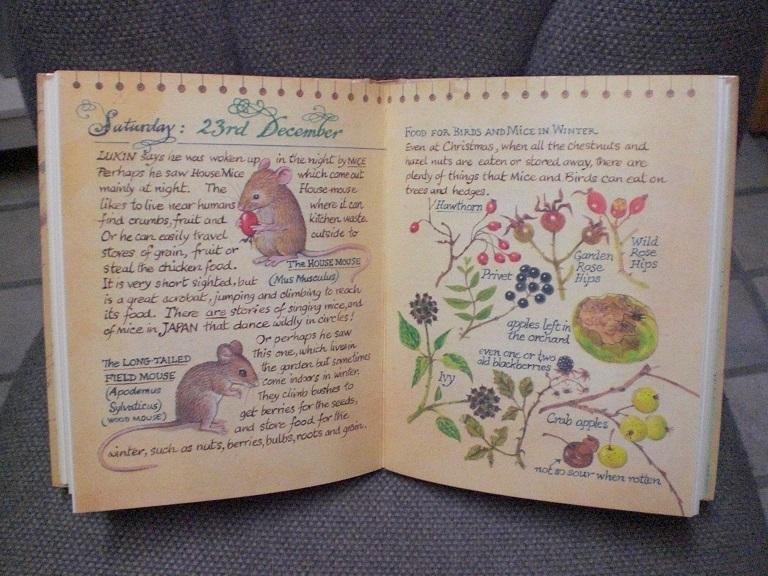 Saturday: 23rd December
LUKIN says he was woken up in the night by MICE
Perhaps he saw House Mice which come out
mainly at night. The House-mouse
likes to live near humans where it can
find crumbs, fruit and kitchen waste.
Or he can easily travel outside to
stores of grain, fruit or
steal the chicken food.
THE HOUSE MOUSE
(Mus Musculus)
It is very short sighted, but
is a great acrobat, jumping and climbing to reach
its food. There are stories of singing mice, and
of mice in JAPAN that dance wildly in circles!
Or perhaps he saw
this one, which lives in
the garden but sometimes
come indoors in winter.
They climb bushes to
get berries for the seeds,
and store food for the
winter, such as nuts, berries, bulbs, roots and grain.
THE LONG-TAILED
FIELD MOUSE
(Apodemus
Sylvaticus)
(WOOD MOUSE)
FOOD FOR BIRDS AND MICE IN WINTER
Even at Christmas, when all the chestnuts and
hazel nuts are eaten or stored away, there are
plenty of things that Mice and Birds can eat on
trees and hedges.
Hawthorn
Garden
Rose
Hips
Wild
Rose
Hips
Privet
apples left in
the orchard
even one or two
old blackberries
Ivy
Crab apples
not so sour when rotten